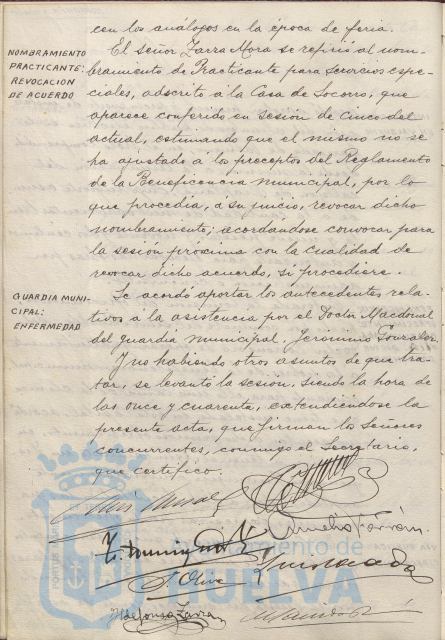 con los análogos en la época de feria.
NOMBRAMIENTO
PRACTICANTE:
REVOCACION
DE ACUERDO
El Señor Zarza Mora se refirió al nom-
bramiento de Practicante para servicios espe-
ciales, adscrito á la Casa de Socorro, que
aparece conferido en sesión de cinco del
actual, estimando que el mismo no se
ha ajustado á los preceptos del Reglamento
de la Beneficencia municipal, por lo
que procedía, á su juicio, revocar dicho
nombramiento; acordandose convocar para
la sesión próxima con la cualidad de
revocar dicho acuerdo, si procediere.
GUARDIA MUNI-
CIPAL:
ENFERMEDAD
Se acordó aportar los antecedentes rela-
tivos á la asistencia por el Doctor Macdonal
del guardia municipal, Jerónimo Gonzalez.
Y no habiendo otros asuntos de que tra-
tar, se levantó la sesión, siendo la hora de
las once y cuarenta, extendiendose la
presente acta, que firman los Señores
concurrentes, conmigo el Secretario,
que certifico.
Ayuntamiento de
HUELVA